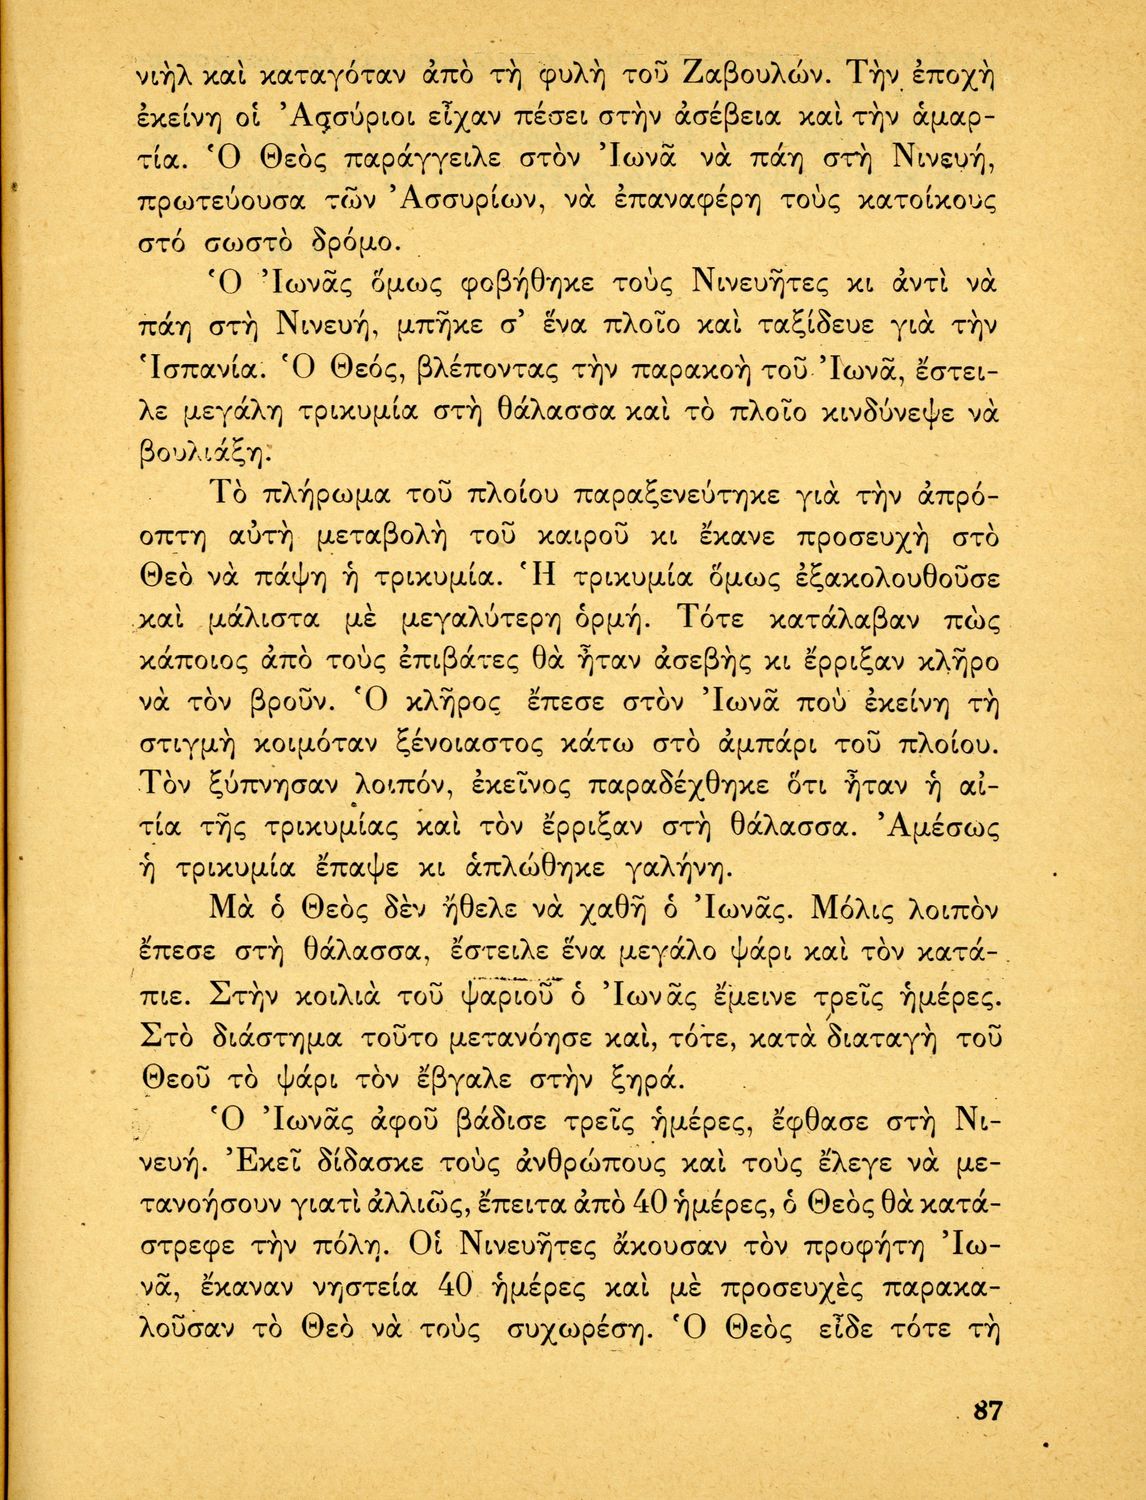 νιὴλ καὶ καταγόταν ἀπὸ τὴ φυλὴ τοῦ Ζαβουλών. Τὴν ἐποχὴ
ἐκείνη οἱ Ἀσσύριοι εἶχαν πέσει στὴν ἀσέβεια καὶ τὴν ἁμαρ-
τία. Ὁ Θεὸς παράγγειλε στὸν Ἰωνᾶ νὰ πάη στὴ Νινευή,
πρωτεύουσα τῶν Ἀσσυρίων, νὰ ἐπαναφέρη τοὺς κατοίκους
στό σωστὸ δρόμο.
Ὁ Ἰωνᾶς ὅμως φοβήθηκε τοὺς Νινευῆτες κι ἀντὶ νὰ
πάη στὴ Νινευή, μπῆκε σ’ ἕνα πλοῖο καὶ ταξίδευε γιὰ τὴν
Ἱσπανία. Ὁ Θεός, βλέποντας τὴν παρακοὴ τοῦ Ἰωνᾶ, ἔστει-
λε μεγάλη τρικυμία στὴ θάλασσα καὶ τὸ πλοῖο κινδύνεψε νὰ
βουλιάξη.
Τὸ πλήρωμα τοῦ πλοίου παραξενεύτηκε γιὰ τὴν ἀπρό-
οπτη αὐτὴ μεταβολὴ τοῦ καιροῦ κι ἔκανε προσευχὴ στὸ
Θεὸ νὰ πάψη ἡ τρικυμία. Ἡ τρικυμία ὅμως ἐξακολουθοῦσε
καὶ μάλιστα μὲ μεγαλύτερη ὁρμή. Τότε κατάλαβαν πὼς
κάποιος ἀπὸ τοὺς ἐπιβάτες θὰ ἦταν ἀσεβὴς κι ἔρριξαν κλῆρο
νὰ τὸν βροῦν. Ὁ κλῆρος ἔπεσε στὸν Ἰωνᾶ ποὺ ἐκείνη τὴ
στιγμὴ κοιμόταν ξένοιαστος κάτω στὸ ἀμπάρι τοῦ πλοίου.
Τὸν ξύπνησαν λοιπόν, ἐκεῖνος παραδέχθηκε ὅτι ἦταν ἡ αἰ-
τία τῆς τρικυμίας καὶ τὸν ἔρριξαν στὴ θάλασσα. Ἀμέσως
ἡ τρικυμία ἔπαψε κι ἁπλώθηκε γαλήνη.
Μὰ ὁ Θεὸς δὲν ἤθελε νὰ χαθῆ ὁ Ἰωνᾶς. Μόλις λοιπὸν
ἔπεσε στὴ θάλασσα, ἔστειλε ἕνα μεγάλο ψάρι καὶ τὸν κατά-
πιε. Στὴν κοιλιὰ τοῦ ψαριοῦ ὁ Ἰωνᾶς ἔμεινε τρεῖς ἡμέρες.
Στὸ διάστημα τοῦτο μετανόησε καὶ, τότε, κατὰ διαταγὴ τοῦ
Θεοῦ τὸ ψάρι τὸν ἔβγαλε στὴν ξηρά.
Ὁ Ἰωνᾶς ἀφοῦ βάδισε τρεῖς ἡμέρες, ἔφθασε στὴ Νι-
νευή. Ἐκεῖ δίδασκε τοὺς ἀνθρώπους καὶ τοὺς ἔλεγε νὰ με-
τανοήσουν γιατὶ ἀλλιῶς, ἔπειτα ἀπὸ 40 ἡμέρες, ὁ Θεὸς θὰ κατά-
στρεφε τὴν πόλη. Οἱ Νινευῆτες ἄκουσαν τὸν προφήτη Ἰω-
νᾶ, ἔκαναν νηστεία 40 ἡμέρες καὶ μὲ προσευχὲς παρακα-
λοῦσαν τὸ Θεὸ νὰ τοὺς συχωρέση. Ὁ Θεὸς εἶδε τότε τὴ
87